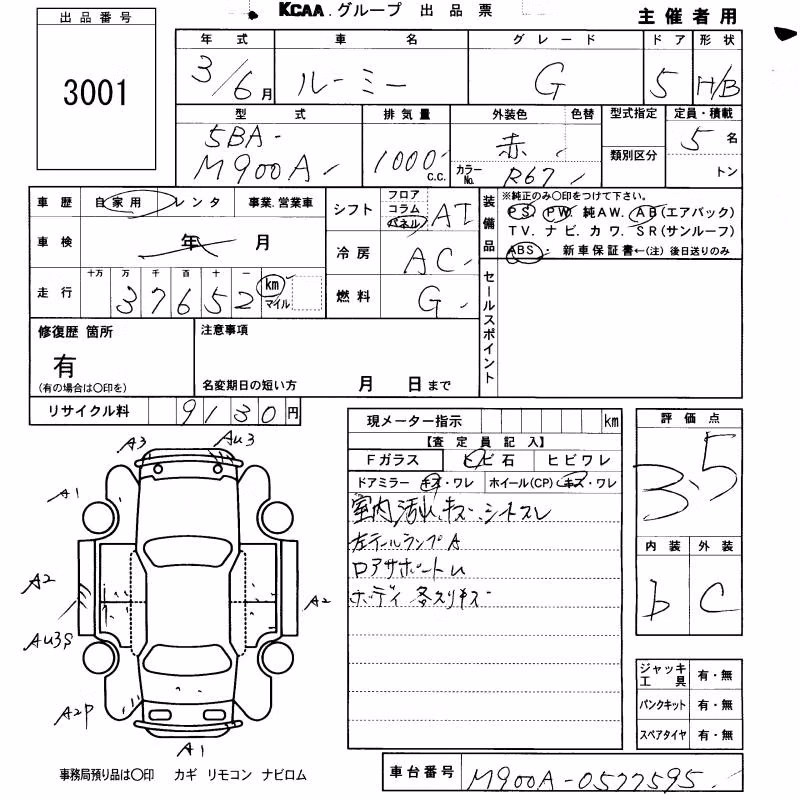 KCAA.グループ 出品票
主催者用
出品番号
3001
年式 車名 グレード ドア 形状
3/6月 ルーミー G 5 H/B
型式 排気量 外装色 色替 型式指定 定員・積載
5BA-
M900A
1000 c.c.
赤
カラーNo. R67
類別区分
5名
トン
車歴 自家用 レンタ 事業.営業車
車検 年 月
走行 十万 万 千 百 十 一
37652 km マイル
シフト フロア コラム パネル AT
冷房 AC
燃料 G
装備品
※純正のみ○印をつけて下さい。
PS PW. 純AW. AB(エアバック)
TV. ナビ. カワ. SR(サンルーフ)
ABS・ 新車保証書←(注) 後日送りのみ
セールスポイント
修復歴 箇所
有
(有の場合は○印を)
注意事項
名変期日の短い方 月 日まで
リサイクル料 9130円
現メーター指示 km
【査定員記入】
Fガラス ヒビ石 ヒビワレ
ドアミラー キズ・ワレ ホイール(CP) キズ・ワレ
室内汚れ.キズ.シートスレ
左テールランプA
ロアサポートU
ボディ 各スリキズ
評価点
3.5
内装 外装
b C
A3 Au3
A1
A2 A2
Au3S
A2P
A1
ジャッキ工具 有・無
パンクキット 有・無
スペアタイヤ 有・無
事務局預り品は○印 カギ リモコン ナビロム
車台番号 M900A-0577595